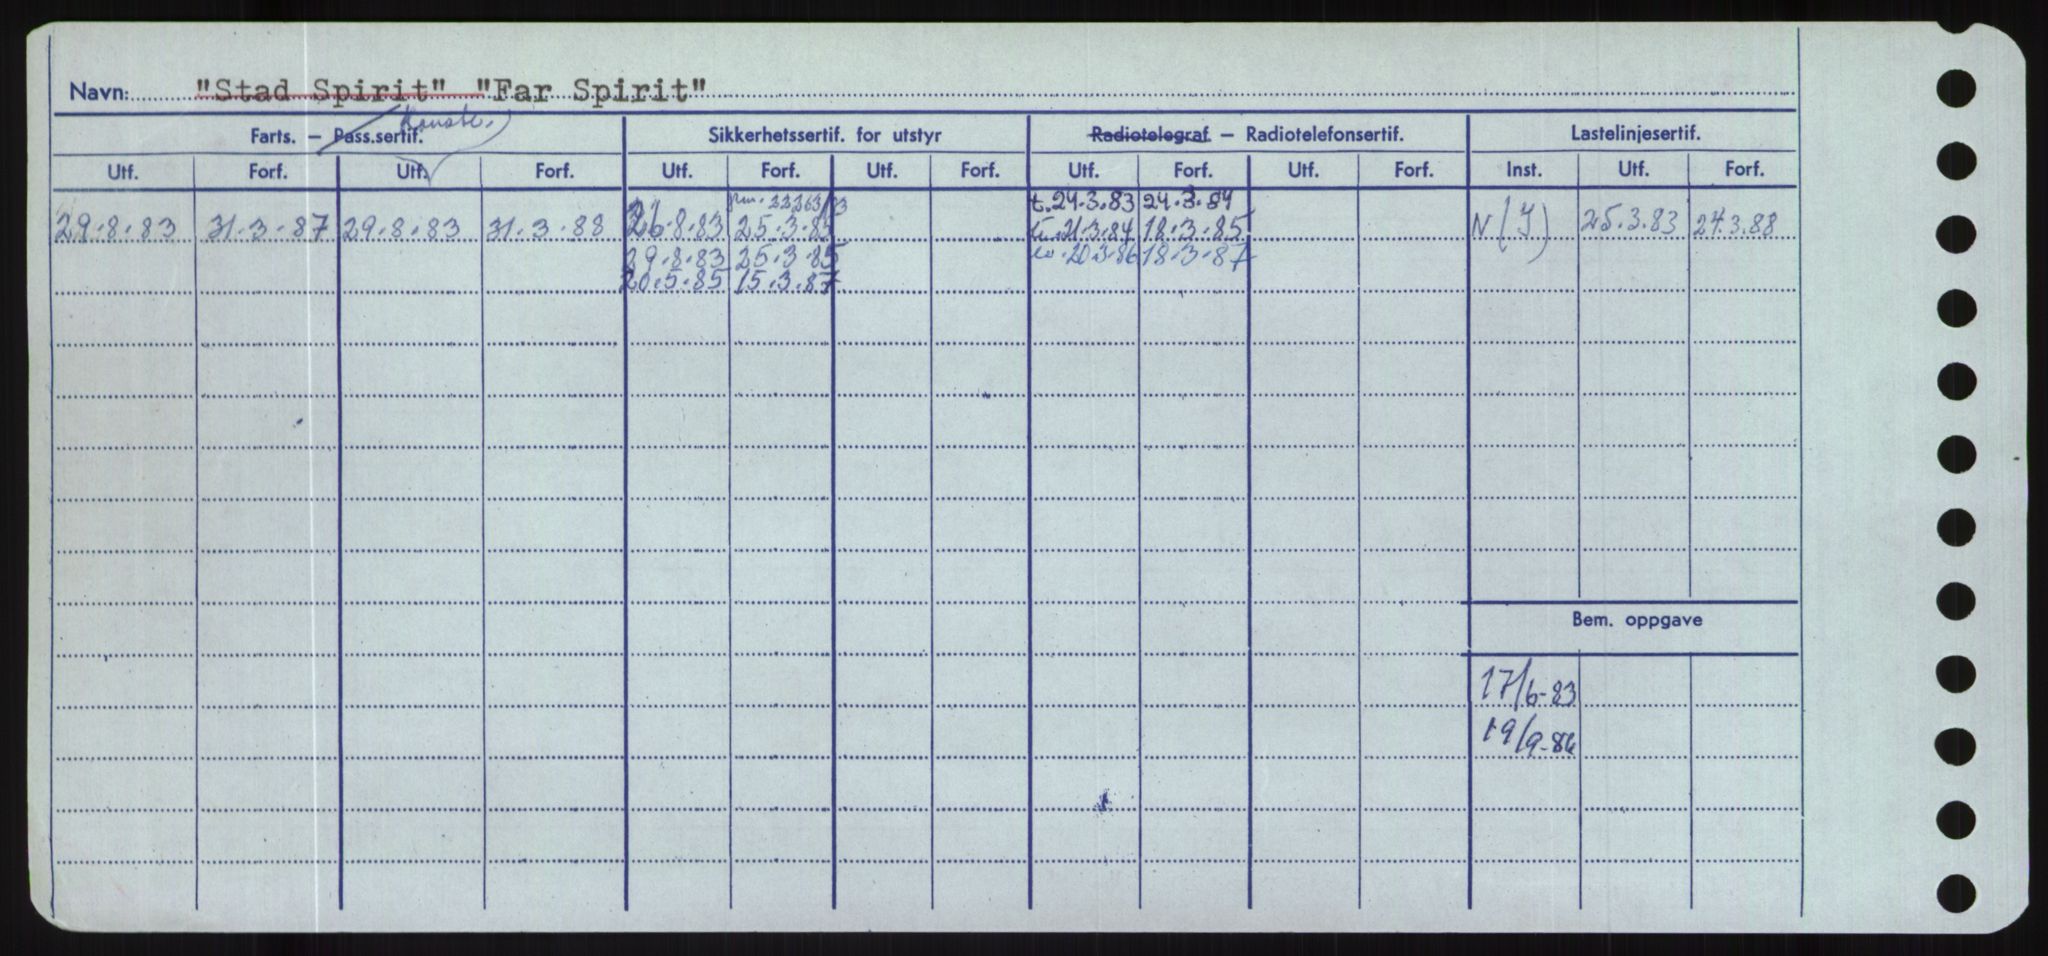 Navn: "Stad Spirit" "Far Spirit"
Farts. – Pass.sertif. Sikkerhetssertif. for utstyr Radiotelegraf – Radiotelefonsertif. Lastelinjesertif.
Utf. Forf. Utf. Forf. Utf. Forf. Utf. Forf. Utf. Forf. Utf. Forf. Inst. Utf. Forf.
t.24.3.83 24.3.84
29.8.83 31.3.87 29.8.83 31.3.88 26.8.83 25.3.85 21.3.84 18.3.85 N (J) 25.3.83 24.3.88
29.8.83 25.3.85 20.3.86 18.3.87
20.5.85 15.3.87
Bem. oppgave
17/6-83
19/9-86